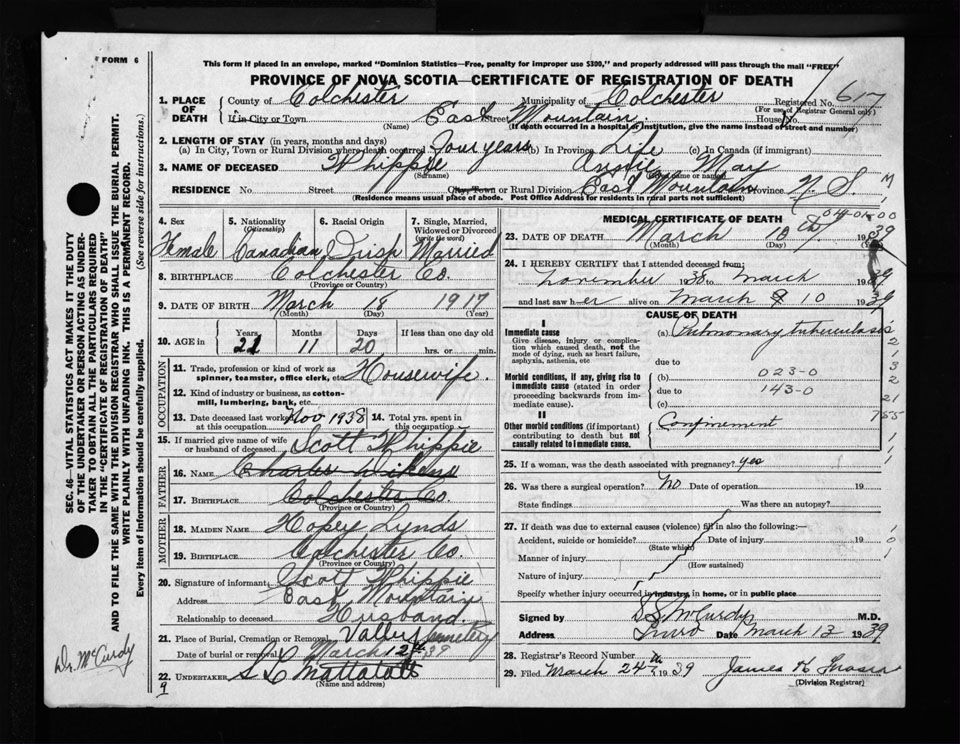 FORM 6
This form if placed in an envelope, marked "Dominion Statistics—Free, penalty for improper use $300," and properly addressed will pass through the mail "FREE"
PROVINCE OF NOVA SCOTIA—CERTIFICATE OF REGISTRATION OF DEATH
1. PLACE OF DEATH
County of Colchester Municipality of Colchester Registered No. 617
(For use of Registrar General only)
If in City or Town East Street Mountain. House No.
(Name) (If death occurred in a hospital or institution, give the name instead of street and number)
2. LENGTH OF STAY (in years, months and days)
(a) In City, Town or Rural Division where death occurred Four years (b) In Province Life (c) In Canada (if immigrant)
3. NAME OF DECEASED Whippie Annie May
(Surname) (Given or name)
RESIDENCE No. Street City, Town or Rural Division East Mountain Province N. S.
(Residence means usual place of abode. Post Office Address for residents in rural parts not sufficient)
M
1
4. Sex 5. Nationality 6. Racial Origin 7. Single, Married, Widowed or Divorced
(Citizenship) (write the word)
Female Canadian Irish Married
8. BIRTHPLACE Colchester Co.
(Province or Country)
9. DATE OF BIRTH March 18 1917
(Month) (Day) (Year)
10. AGE in Years Months Days If less than one day old
21 11 20 hrs. or min.
OCCUPATION
11. Trade, profession or kind of work as spinner, teamster, office clerk, etc. Housewife.
12. Kind of industry or business, as cotton-mill, lumbering, bank, etc.
13. Date deceased last worked at this occupation Nov 1938 14. Total yrs. spent in this occupation
15. If married give name of wife or husband of deceased Scott Whippie
FATHER
16. NAME Charles
17. BIRTHPLACE Colchester Co.
(Province or Country)
MOTHER
18. MAIDEN NAME Hopey Lynds
19. BIRTHPLACE Colchester Co.
(Province or Country)
20. Signature of informant Scott Whippie
Address East Mountain
Relationship to deceased Husband.
21. Place of Burial, Cremation or Removal Valley Cemetery
Date of burial or removal March 12th 1939
22. UNDERTAKER S L Mattatall
(Name and address)
9
MEDICAL CERTIFICATE OF DEATH
04-01-00
23. DATE OF DEATH March 10 1939
(Month) (Day) (Year)
24. I HEREBY CERTIFY that I attended deceased from:
November 1938 to March 1939
and last saw her alive on March 10 1939
CAUSE OF DEATH
I
Immediate cause (a) Pulmonary tuberculosis
Give disease, injury or complication which caused death, not the mode of dying, such as heart failure, asphyxia, asthenia, etc
due to
Morbid conditions, if any, giving rise to immediate cause (stated in order proceeding backwards from immediate cause).
(b) 023-0
due to 143-0
(c)
II
Other morbid conditions (if important) contributing to death but not causally related to immediate cause.
Confinement
2
1
3
2
21
755
1
1
1
25. If a woman, was the death associated with pregnancy? yes
26. Was there a surgical operation? No Date of operation 19
State findings Was there an autopsy?
27. If death was due to external causes (violence) fill in also the following:—
Accident, suicide or homicide? Date of injury 19
(State which)
Manner of injury
(How sustained)
Nature of injury
Specify whether injury occurred in industry, in home, or in public place
1
0
1
Signed by S L McCurdy M.D.
Address Truro Date March 13 1939
28. Registrar's Record Number
29. Filed March 24th 1939 James H
(Division Registrar)
SEC. 46—VITAL STATISTICS ACT MAKES IT THE DUTY
OF THE UNDERTAKER OR PERSON ACTING AS UNDERTAKER TO OBTAIN ALL THE PARTICULARS REQUIRED
IN THE "CERTIFICATE OF REGISTRATION OF DEATH"
AND TO FILE THE SAME WITH THE DIVISION REGISTRAR WHO SHALL ISSUE THE BURIAL PERMIT.
WRITE PLAINLY WITH UNFADING INK. THIS IS A PERMANENT RECORD.
Every item of information should be carefully supplied. (See reverse side for instructions.)
Dr. McCurdy